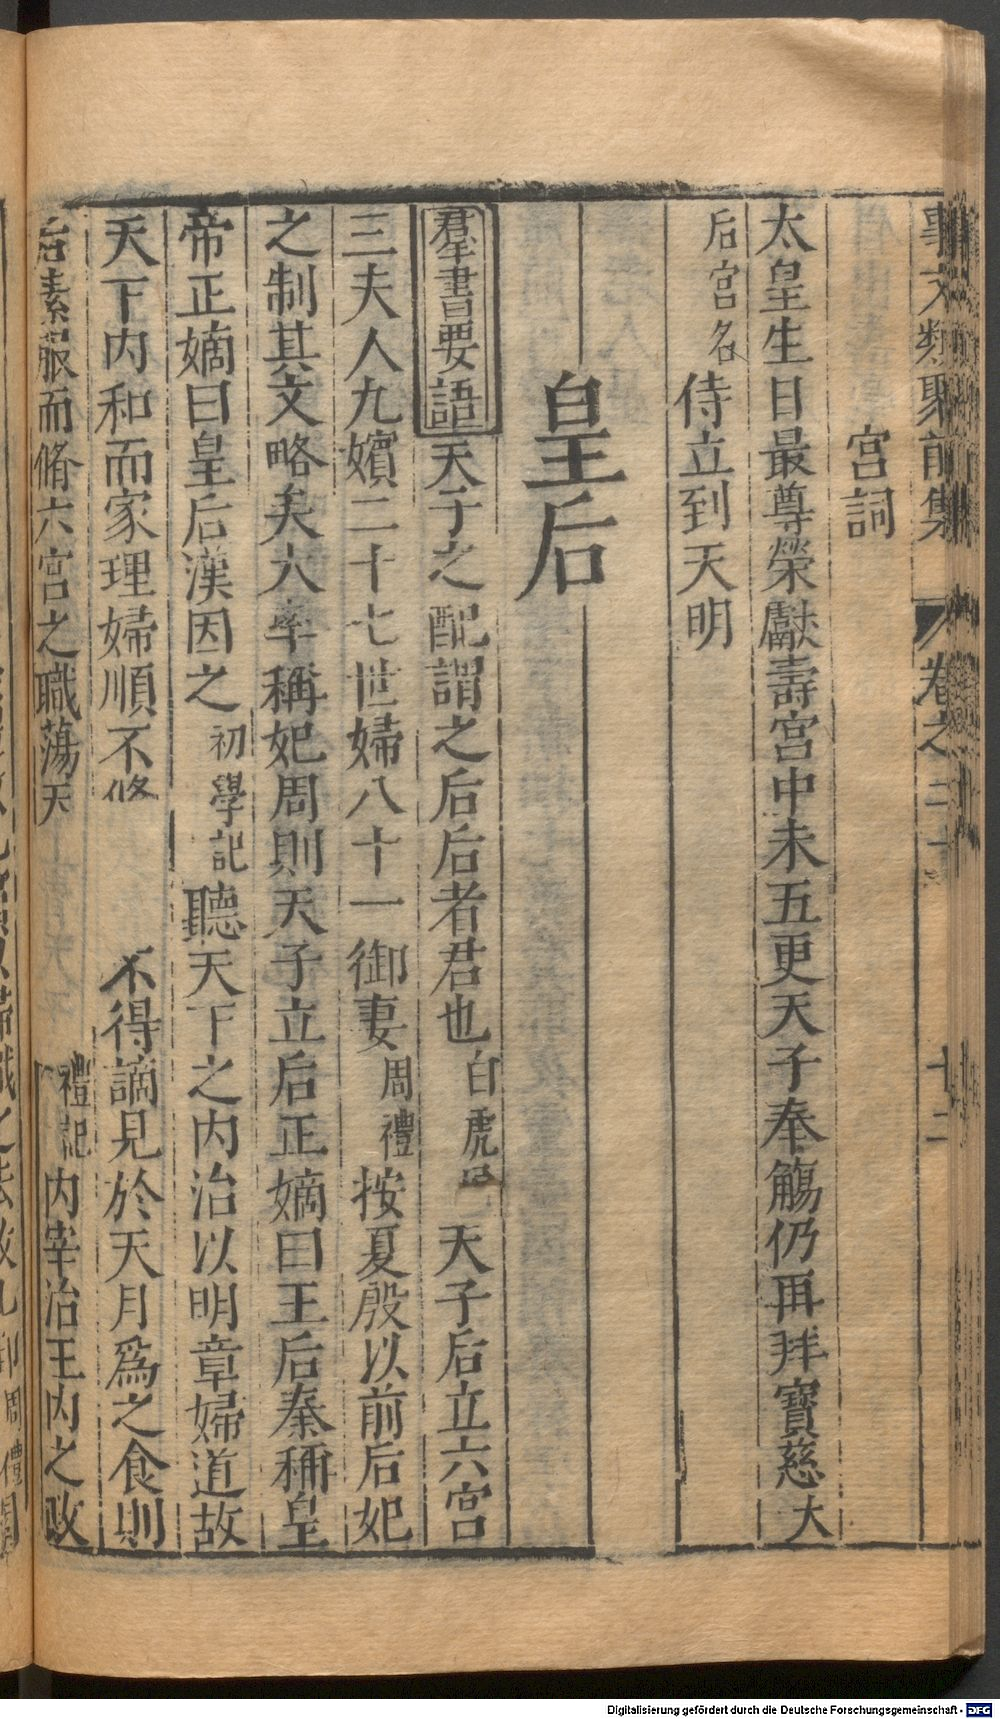 事文類聚前集 卷之二十 十二
宮詞
太皇生日最尊榮獻壽宮中未五更天子奉觴仍再拜寶慈大
后宮名侍立到天明
皇后
羣書要語天子之配謂之后后者君也白虎 天子后立六宮
三夫人九嬪二十七世婦八十一御妻周禮按夏殷以前后妃
之制其文略矣大率稱妃周則天子立后正嫡曰王后秦稱皇
帝正嫡曰皇后漢因之初學記聽天下之內治以明章婦道故
天下內和而家理婦順不修 不得謫見於天月爲之食則
后素服而脩六宮之職蕩天 禮記內宰治王內之政
Digitalisierung gefördert durch die Deutsche Forschungsgemeinschaft - DFG